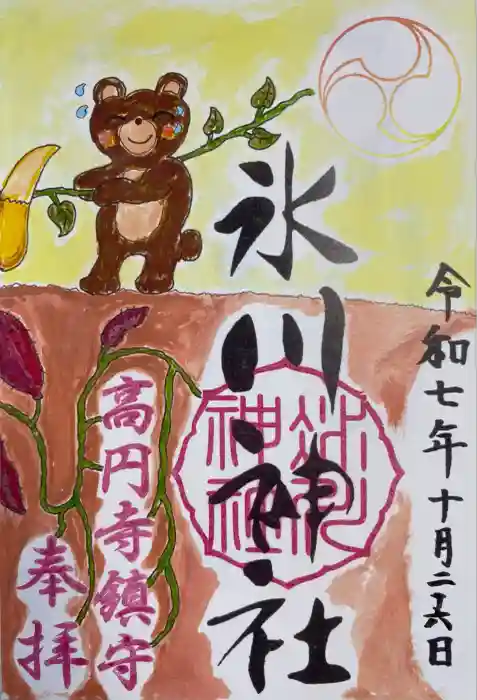 令和七年十月二十六日
氷川神社
氷川
神社
高円寺鎮守
奉拝